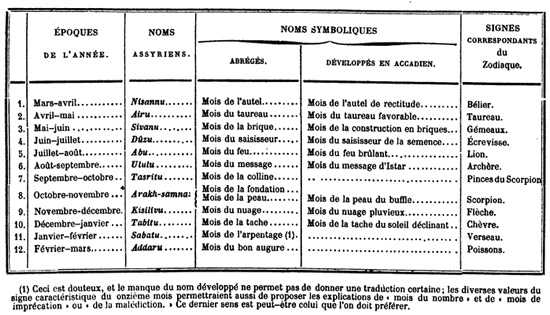 ÉPOQUES
DE L'ANNÉE.
NOMS
ASSYRIENS.
NOMS SYMBOLIQUES
ABRÉGÉS.
DÉVELOPPÉS EN ACCADIEN.
SIGNES
CORRESPONDANTS
du
Zodiaque.
1. Mars-avril.......... Nisannu...... Mois de l'autel.......... Mois de l'autel de rectitude......... Bélier.
2. Avril-mai.......... Airu......... Mois du taureau........ Mois du taureau favorable.......... Taureau.
3. Mai-juin.......... Sivanu...... Mois de la brique....... Mois de la construction en briques... Gémeaux.
4. Juin-juillet.......... Dûzu........ Mois du saisisseur....... Mois du saisisseur de la semence.... Écrevisse.
5. Juillet-août......... Abu......... Mois du feu............ Mois du feu brûlant................ Lion.
6. Août-septembre.... Ululu....... Mois du message....... Mois du message d'Istar............ Archère.
7. Septembre-octobre.. Tasritu...... Mois de la colline....... .......... Pinces du Scorpion
8. Octobre-novembre... Arakh-samna: Mois de la fondation....
Mois de la peau........ Mois de la peau du buffle........... Scorpion.
9. Novembre-décembre. Kisilivu..... Mois du nuage......... Mois du nuage pluvieux............ Flèche.
10. Décembre-janvier... Tabitu...... Mois de la tache........ Mois de la tache du soleil déclinant.. Chèvre.
11. Janvier-février...... Sabatu...... Mois de l'arpentage (1). .......... Verseau.
12. Février-mars....... Addaru...... Mois du bon augure..... .......... Poissons.
(1) Ceci est douteux, et le manque du nom développé ne permet pas de donner une traduction certaine; les diverses valeurs du
signe caractéristique du onzième mois permettraient aussi de proposer les explications de « mois du nombre » et de « mois de
imprécation » ou « de la malédiction. » Ce dernier sens est peut-être celui que l'on doit préférer.